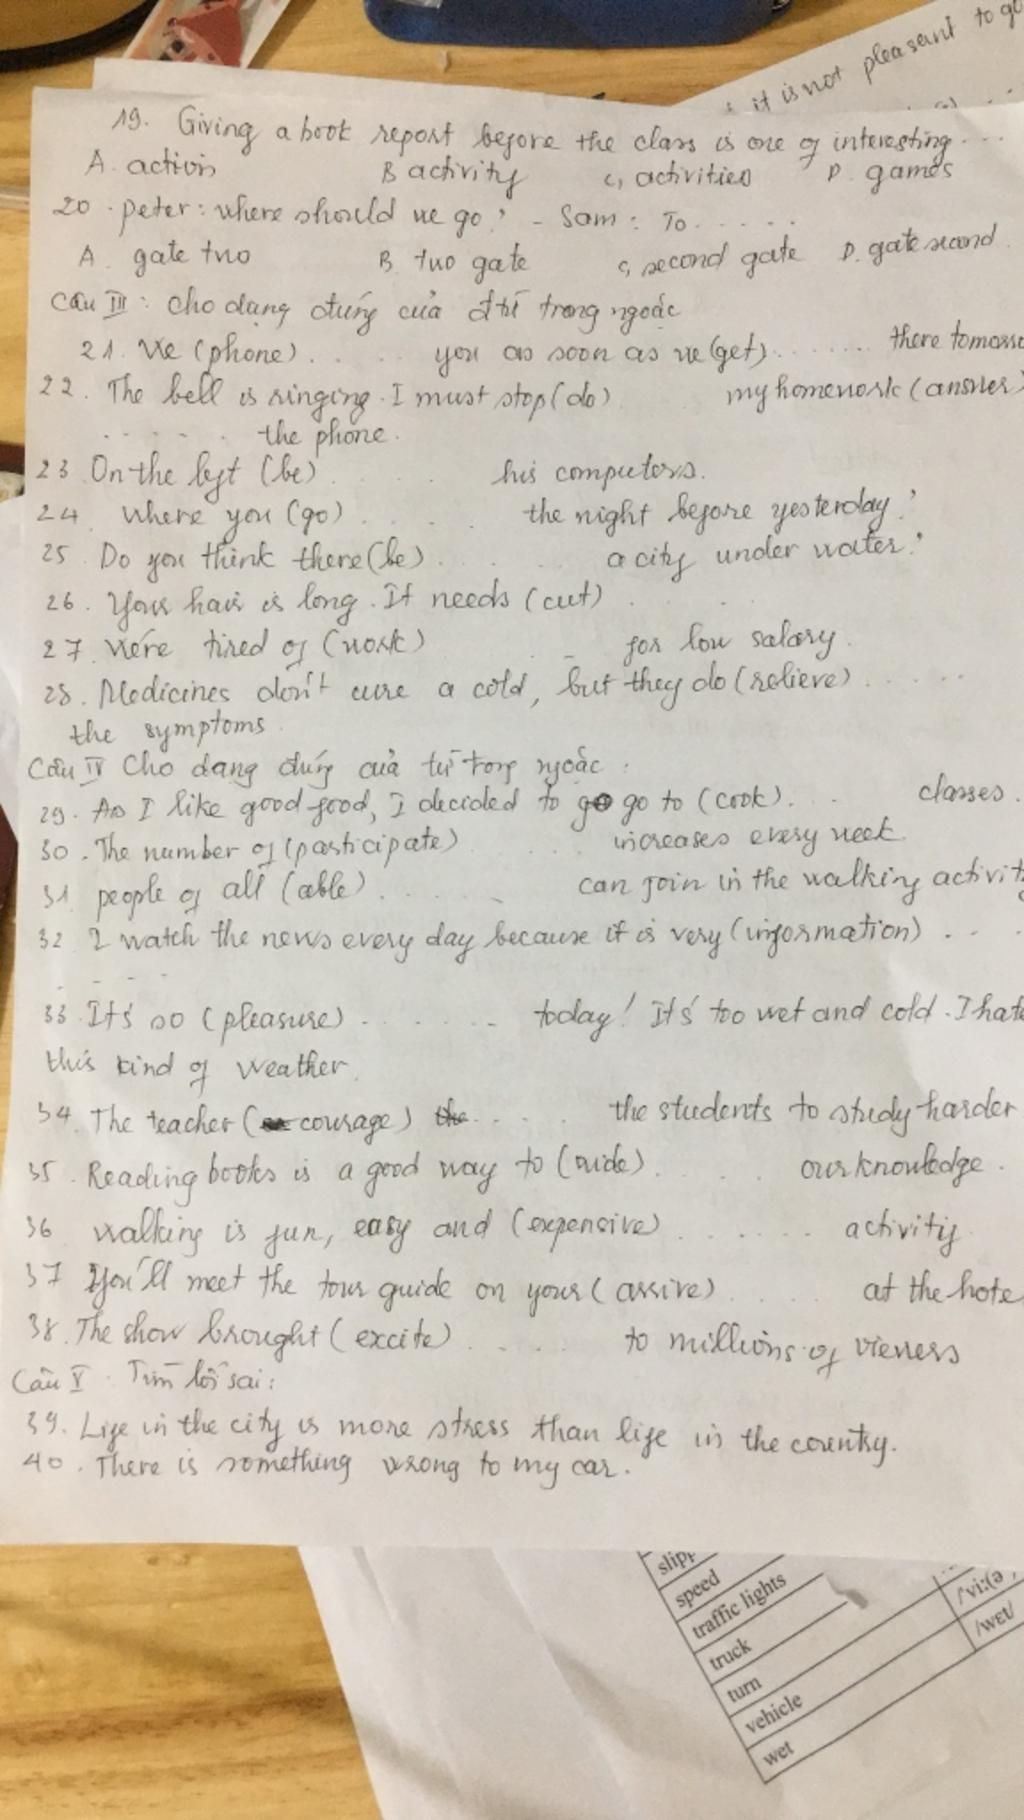 it is not pleasant to go
19. Giving a book report before the class is one of interesting ....
A. action B activity C, activities D. games
20. peter: where should we go? - Sam: To......
A. gate two B. two gate C, second gate D. gate second.
Câu III: Cho dạng đúng của đtừ trong ngoặc
21. We (phone)..... you as soon as we (get)........ there tomorro
22. The bell is ringing. I must stop (do) my homework (answer)
...... the phone.
23 On the left (be)..... his computers.
24 Where you (go)..... the night before yesterday?
25. Do you think there (be)..... a city under water?
26. Your hair is long. It needs (cut).....
27. We're tired of (work) .... for low salary.
28. Medicines don't cure a cold, but they do (relieve)......
the symptoms.
Câu IV Cho dạng đúng của từ trong ngoặc:
29. As I like good food, I decided to go to (cook)... classes.
30. The number of (participate) .... increases every week.
31 people of all (able)...... can join in the walking activit
32 I watch the news every day because it is very (information)....
...
33. It's so (pleasure)....... today! It's too wet and cold. I hate
this kind of weather.
34. The teacher (courage) .... the students to study harder.
35. Reading books is a good way to (wide)..... our knowledge.
36 Walking is fun, easy and (expensive)....... activitiy
37 You'll meet the tour guide on your (arrive)..... at the hote
38. The show brought (excite)..... to millions of viewers
Câu V: Tìm lỗi sai:
39. Life in the city is more stress than life in the country.
40. There is something wrong to my car.
speed
traffic lights
truck
turn
vehicle
wet
/wet/